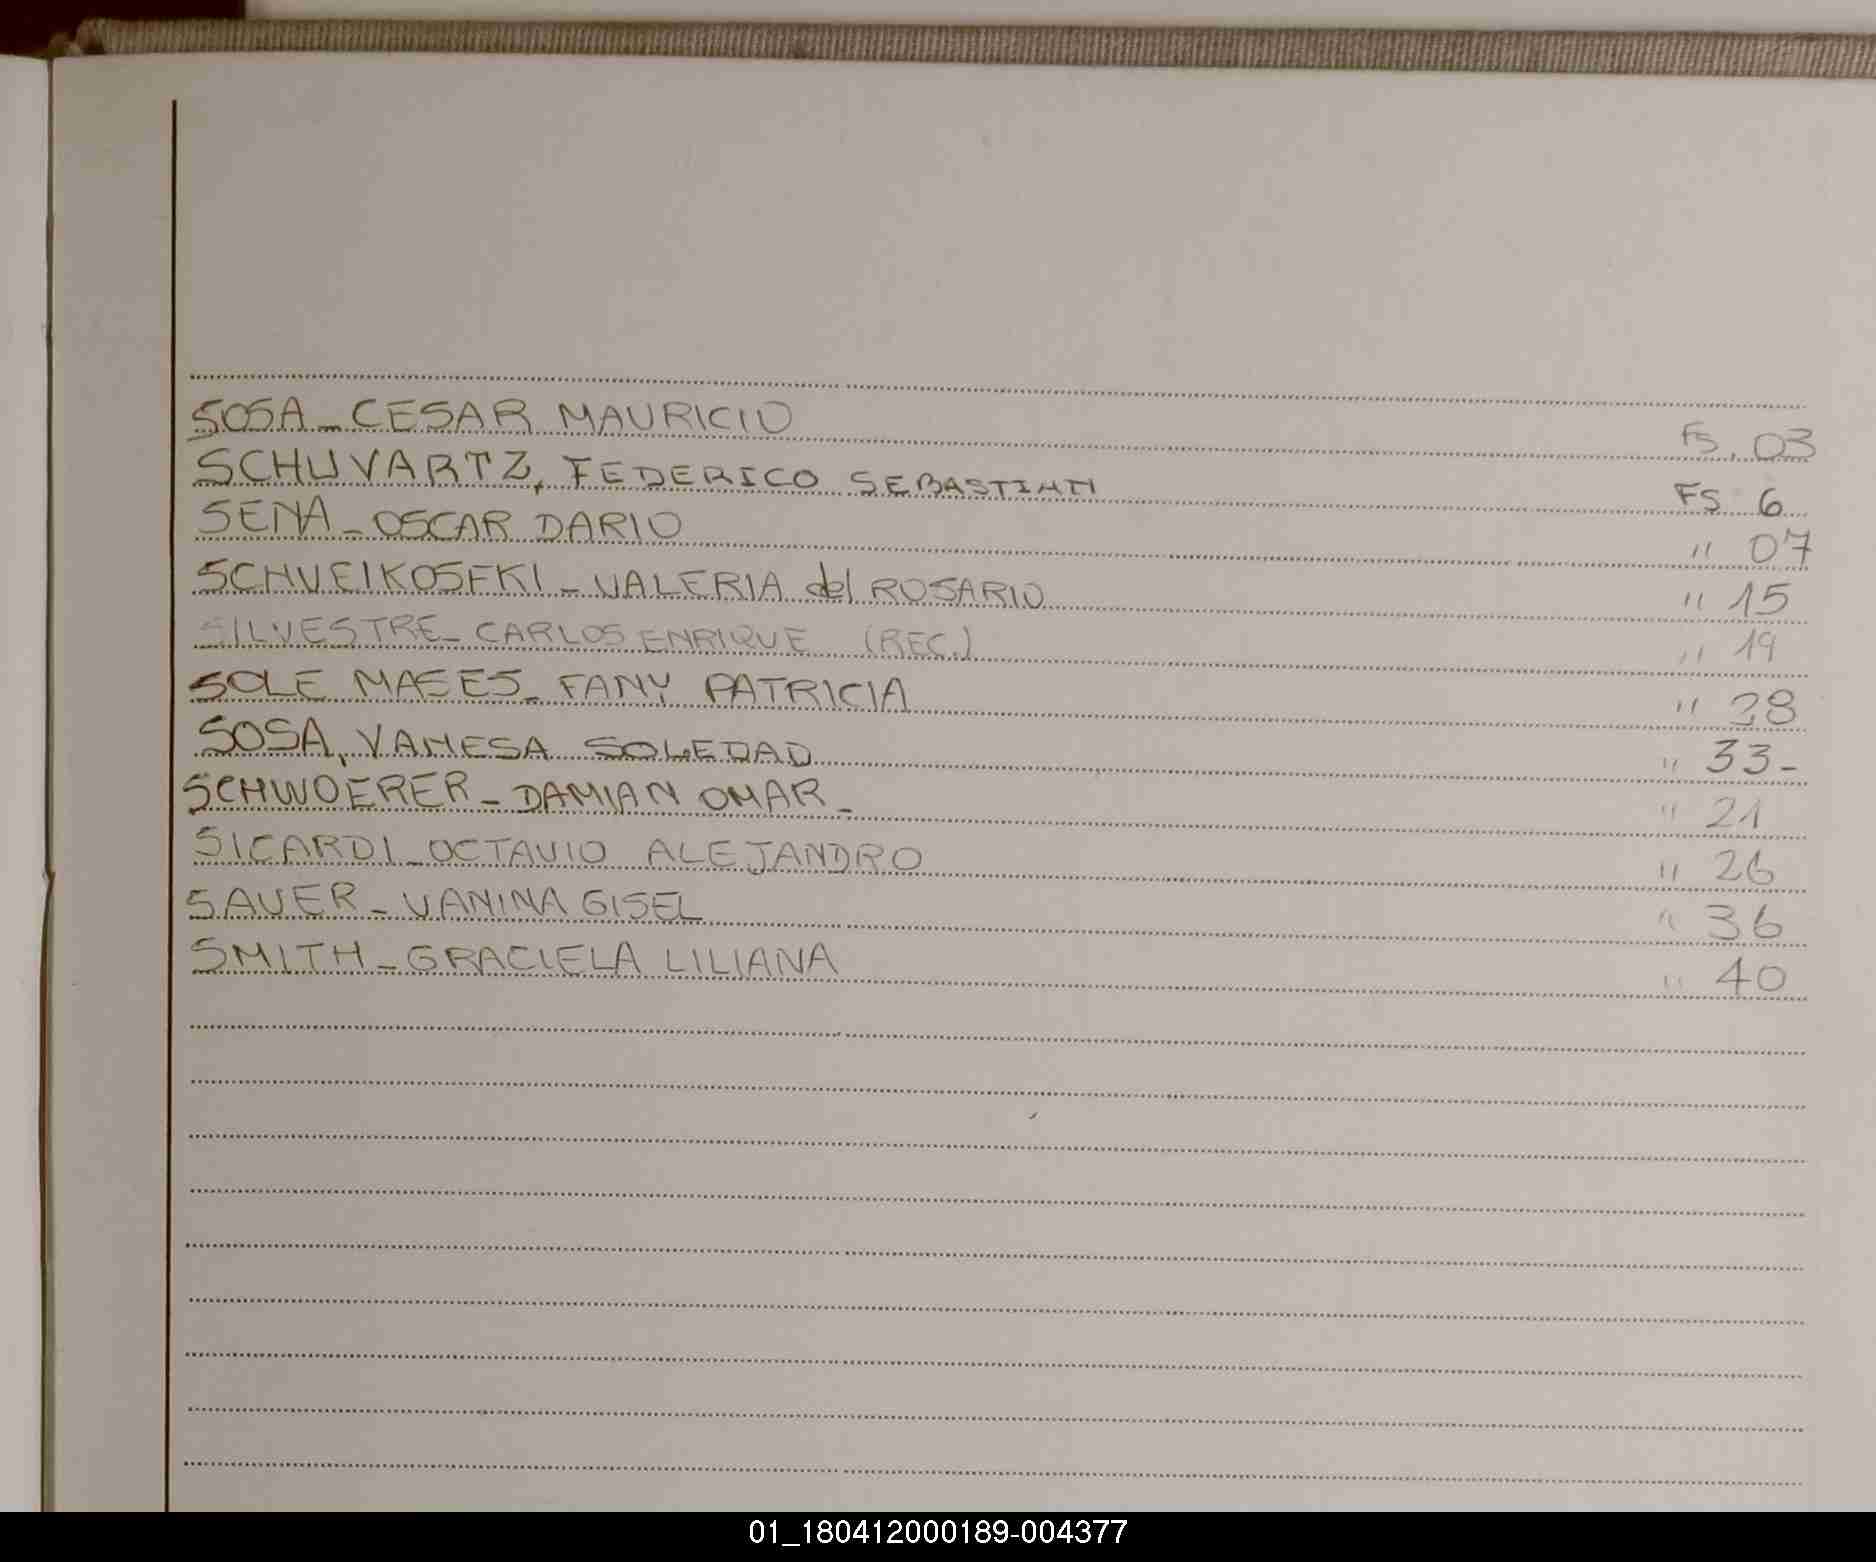 SOSA_CESAR MAURICIO FS. 03
SCHUVARTZ, FEDERICO SEBASTIAN FS 6
SENA_OSCAR DARIO " 07
SCHVEIKOSFKI_VALERIA del ROSARIO " 15
SILVESTRE_CARLOS ENRIQUE (REC.) " 19
SOLE MASES_FANY PATRICIA " 28
SOSA, VANESA SOLEDAD " 33-
SCHWOERER_DAMIAN OMAR_ " 21
SICARDI_OCTAVIO ALEJANDRO " 26
SAUER_VANINA GISEL " 36
SMITH_GRACIELA LILIANA " 40
01_180412000189-004377